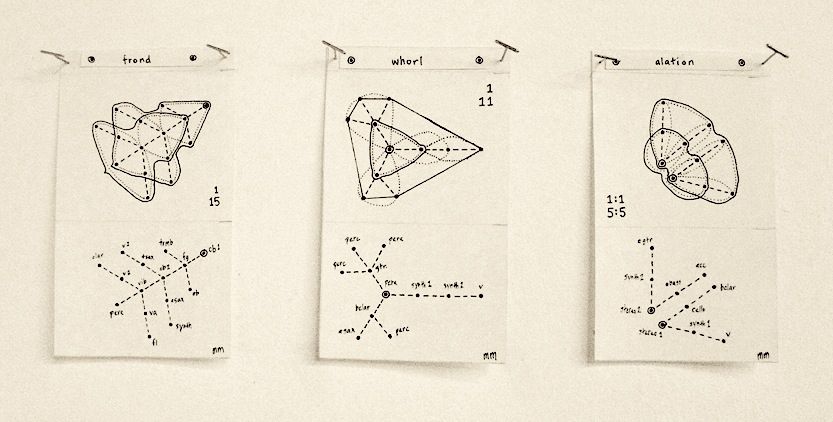 frond
1
15
clar
v2
tsax
trmb
fg
cb1
v1
vib
cb2
eb
perc
va
asax
synth
fl
mm
whorl
1
11
perc
perc
perc
gtr.
perc
synth1
synth2
v
bclar
asax
perc
mm
alation
1:1
5:5
egtr
synth1
acc
ebass
bclar
cello
synth1
v
mm